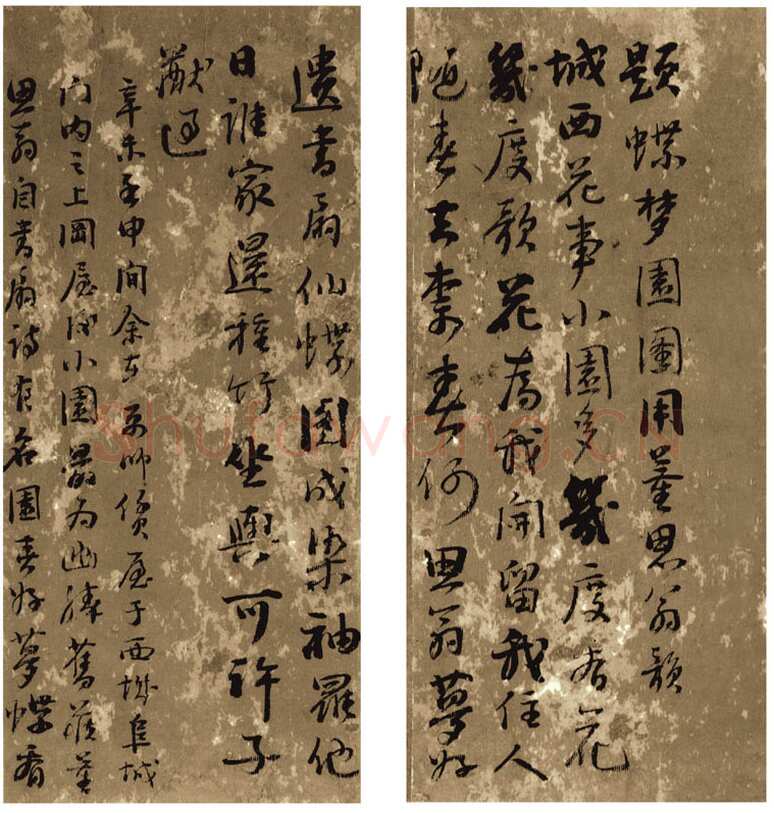 題蝶梦園圖用董思翁韻
城西花事小園多幾度看花
幾度歌花為我開留我住人
隨春去柰春何思翁夢好
遺書扇仙蝶圖成染袖羅他
日誰家還種竹坐輿可許子
猷過
辛未壬申間余在京師賃屋于西城阜城
門内之上岡屋後小園最為幽舊藏董
思翁自書扇詩有名園春好夢蝶看
Shufawang.CN